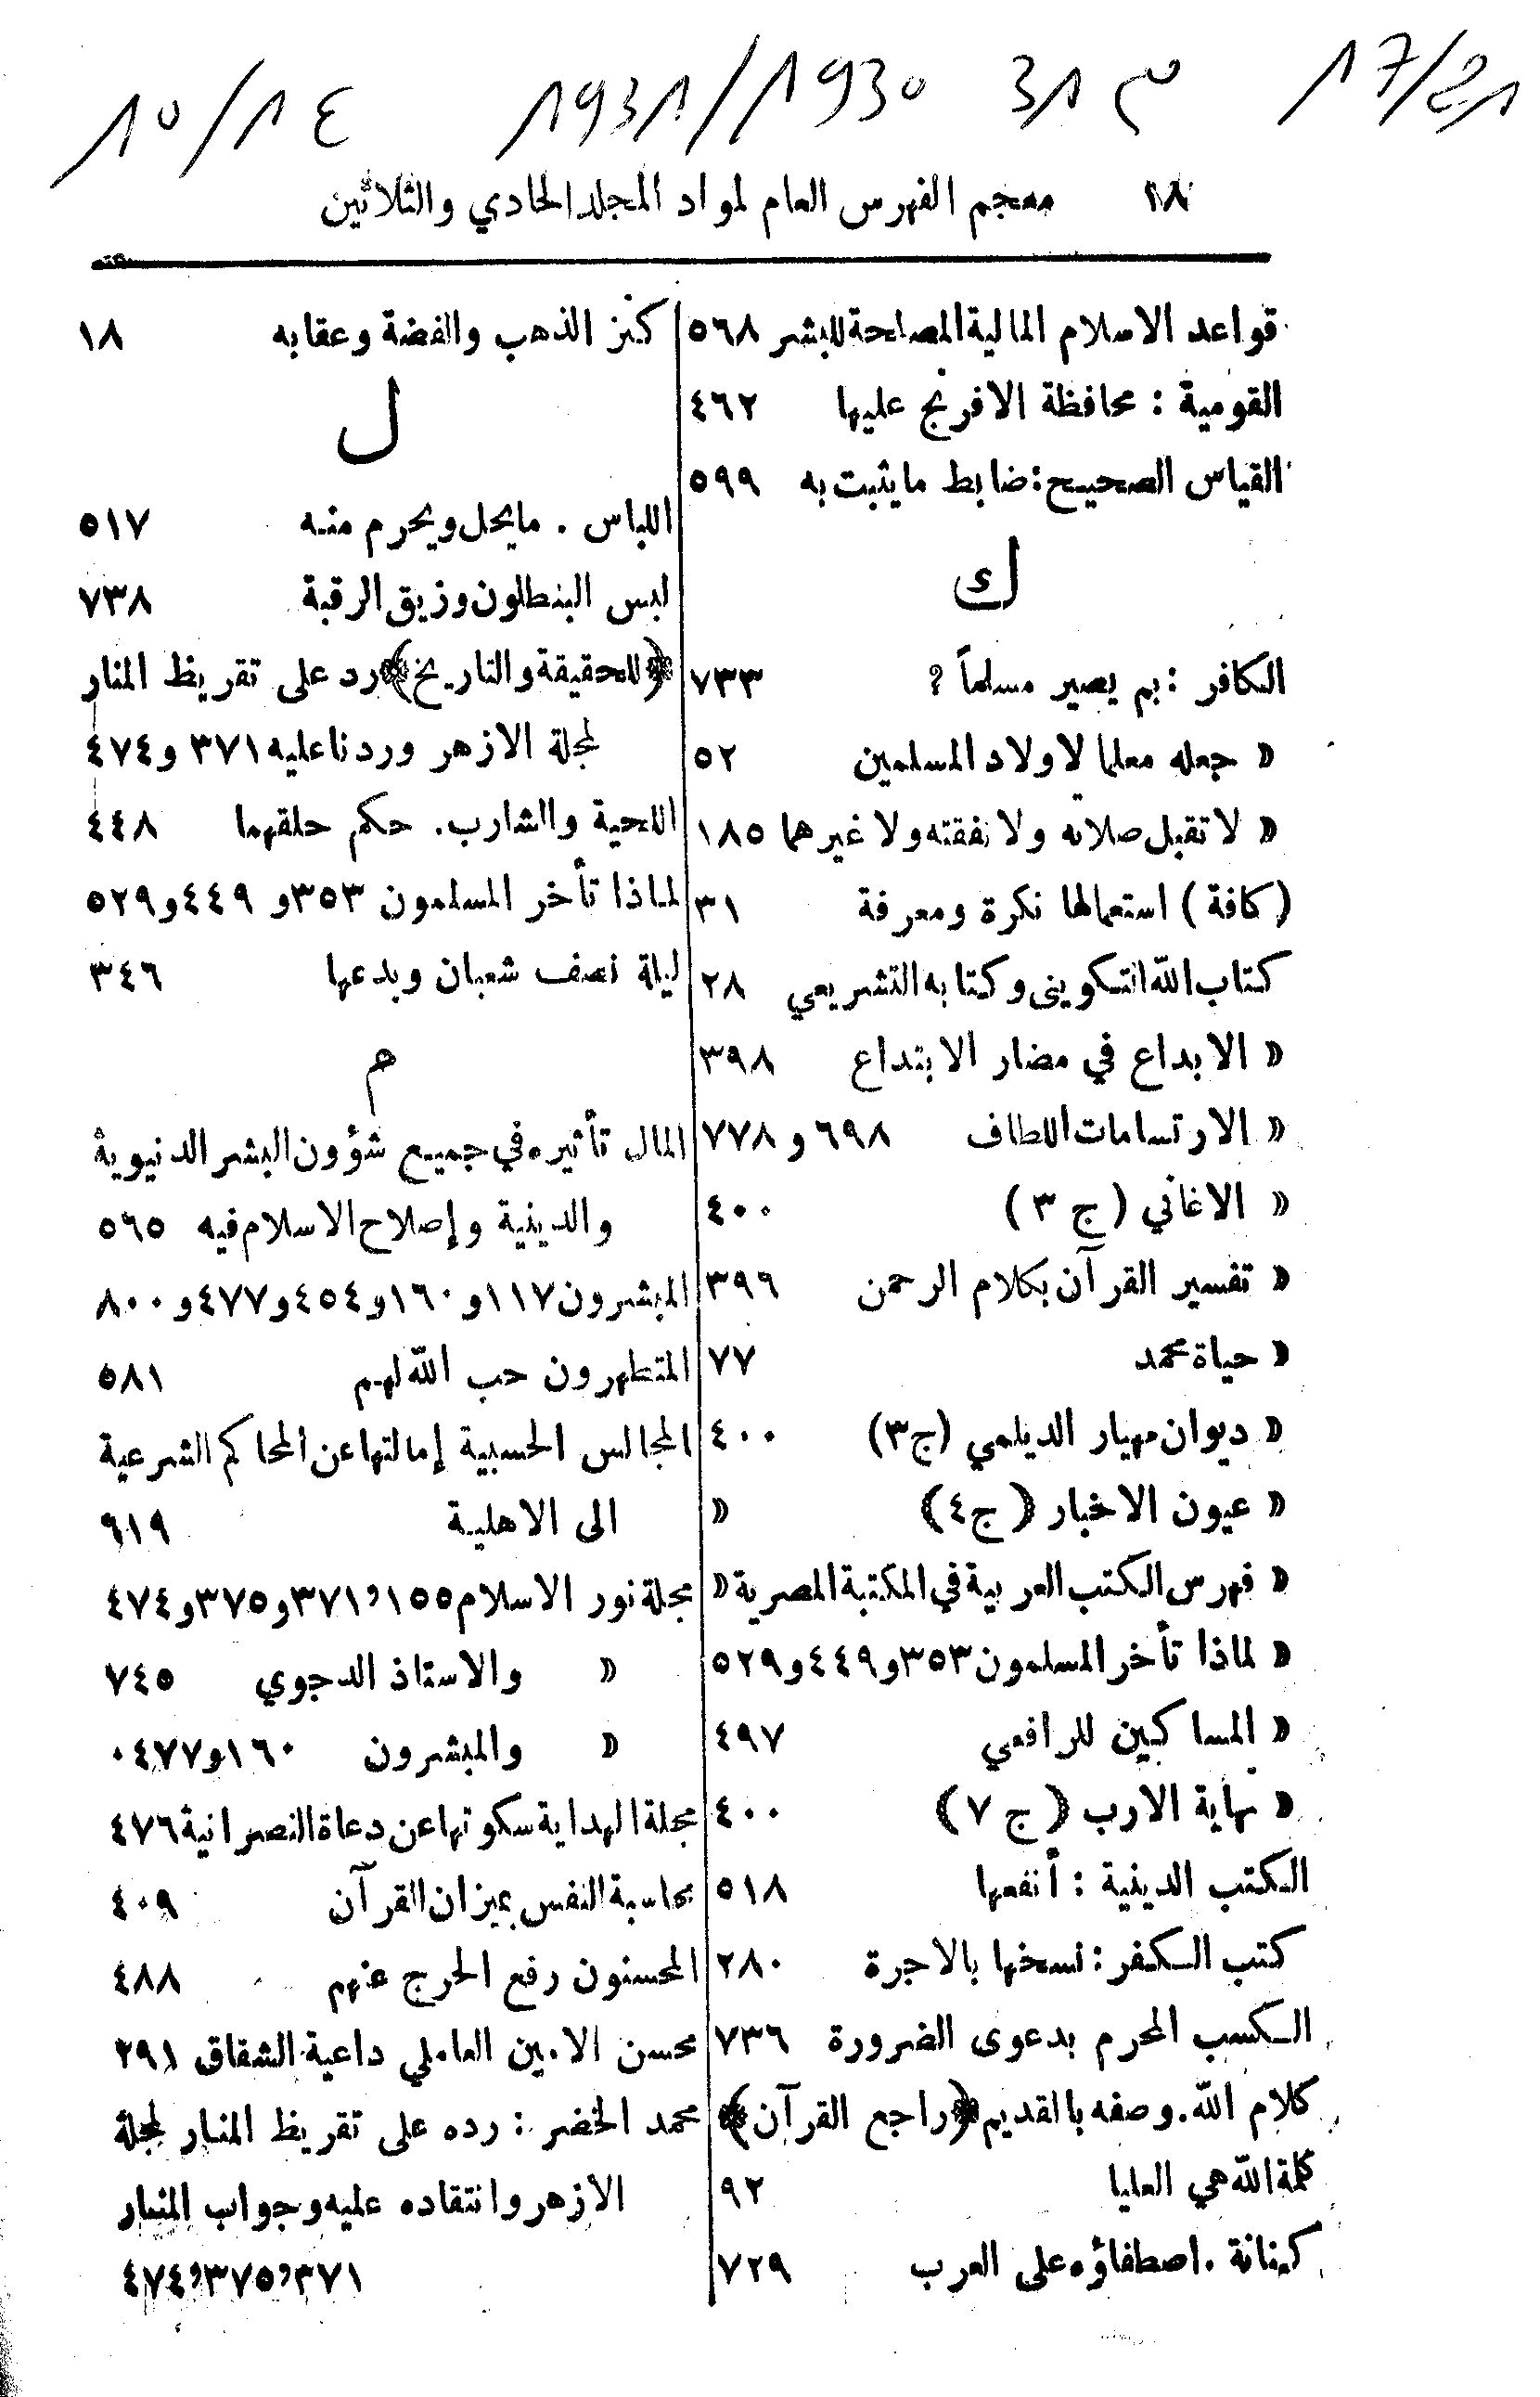 17/21 م 31 1930/1931 ١٤/١٥
١٨ معجم الفهرس العام لمواد المجلد الحادي والثلاثين
قواعد الاسلام المالية المصلحة للبشر ٥٦٨
القومية : محافظة الافرنج عليها ٤٦٢
القياس الصحيح : ضابط ما يثبت به ٥٩٩
ك
الكافر : بم يصير مسلماً ؟ ٧٣٣
« جعله معلما لاولاد المسلمين ٥٢
« لا تقبل صلاته ولا نفقته ولا غيرهما ١٨٥
( كافة ) استعمالها نكرة ومعرفة ٣١
كتاب الله التكويني وكتابه التشريعي ٢٨
« الابداع في مضار الابتداع ٣٩٨
« الارتسامات اللطاف ٦٩٨ و ٧٧٨
« الاغاني ( ج ٣ ) ٤٠٠
« تفسير القرآن بكلام الرحمن ٣٩٦
« حياة محمد ٧٧
« ديوان مهيار الديلمي (ج٣) ٤٠٠
« عيون الاخبار ( ج٤ ) «
« فهرس الكتب العربية في المكتبة المصرية «
« لماذا تأخر المسلمون ٣٥٣ و ٤٤٩ و ٥٢٩
« المساكين للرافعي ٤٩٧
« نهاية الارب ( ج ٧ ) ٤٠٠
الكتب الدينية : أنفعها ٥١٨
كتب الكفر : نسخها بالاجرة ٢٨٠
الكسب المحرم بدعوى الضرورة ٧٣٦
كلام الله . وصفه بالقديم ﴿راجع القرآن﴾
كلمة الله هي العليا ٩٢
كنانة . اصطفاؤه على العرب ٧٢٩
كنز الذهب والفضة وعقابه ١٨
ل
اللباس . ما يحل ويحرم منه ٥١٧
لبس البنطلون وزيق الرقبة ٧٣٨
﴿للحقيقة والتاريخ﴾ رد على تقريظ المنار
لمجلة الازهر وردنا عليه ٣٧١ و ٤٧٤
اللحية والشارب . حكم حلقهما ٤٤٨
لماذا تأخر المسلمون ٣٥٣ و ٤٤٩ و ٥٢٩
ليلة نصف شعبان وبدعها ٣٤٦
م
المال تأثيره في جميع شؤون البشر الدنيوية
والدينية وإصلاح الاسلام فيه ٥٦٥
المبشرون ١١٧ و ١٦٠ و ٤٥٤ و ٤٧٧ و ٨٠٠
المتطهرون حب الله لهم ٥٨١
المجالس الحسبية إمالتها عن المحاكم الشرعية
الى الاهلية ٦١٩
مجلة نور الاسلام ١٥٥ و ٣٧١ و ٣٧٥ و ٤٧٤
« والاستاذ الدجوي ٧٤٥
« والمبشرون ١٦٠ و ٤٧٧٠
مجلة الهداية سكوتها عن دعاة النصرانية ٤٧٦
محاسبة النفس بميزان القرآن ٤٠٩
المحسنون رفع الحرج عنهم ٤٨٨
محسن الامين العاملي داعية الشقاق ٢٩١
محمد الخضر : رده على تقريظ المنار لمجلة
الازهر وانتقاده عليه وجواب المنار
٣٧١ و ٣٧٥ و ٤٧٤